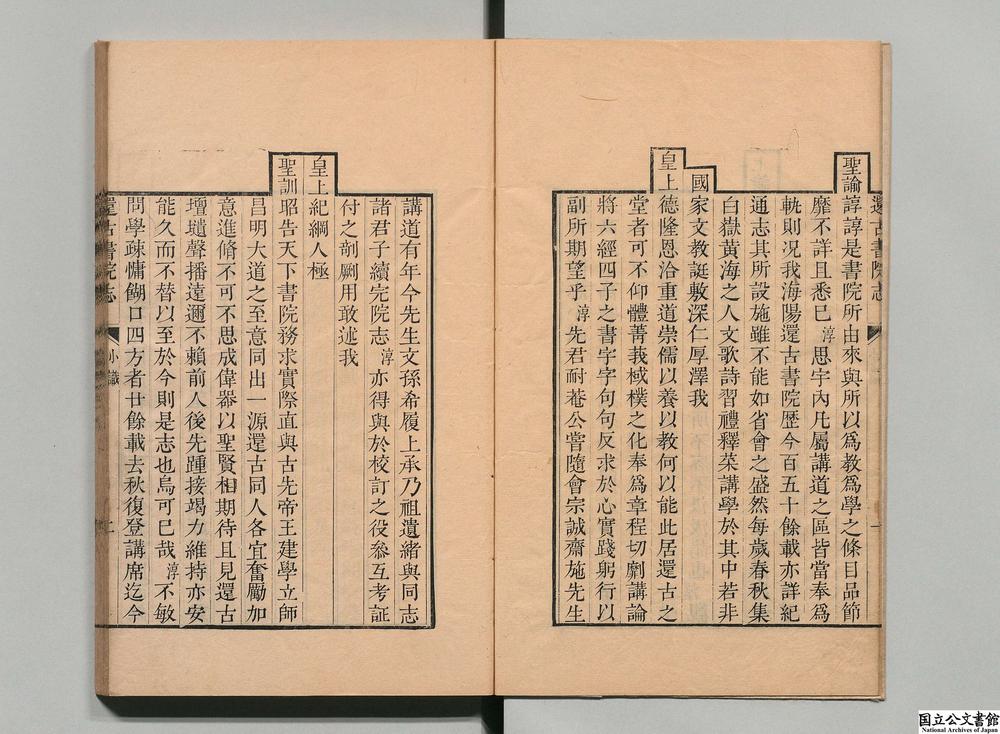 還古書院志 一
聖諭諄諄是書院所由來與所以爲教爲學之條目品節
靡不詳且悉已淳思宇內凡屬講道之區皆當奉爲
軌則况我海陽還古書院歷今百五十餘載亦詳紀
通志其所設施雖不能如省會之盛然每歲春秋集
白嶽黃海之人文歌詩習禮釋菜講學於其中若非
國家文教誕敷深仁厚澤我
皇上德隆恩洽重道崇儒以養以教何以能此居還古之
堂者可不仰體菁莪棫樸之化奉爲章程切劘講論
將六經四子之書字字句句反求於心實踐躬行以
副所期望乎淳先君耐菴公嘗隨會宗誠齋施先生
講道有年今先生文孫希履上承乃祖遺緒與同志
諸君子續完院志淳亦得與於校訂之役叅互考証
付之剞劂用敢述我
皇上紀綱人極
聖訓昭告天下書院務求實際直與古先帝王建學立師
昌明大道之至意同出一源還古同人各宜奮勵加
意進脩不可不思成偉器以聖賢相期待且見還古
壇壝聲播遠邇不賴前人後先踵接竭力維持亦安
能久而不替以至於今則是志也烏可已哉淳不敏
問學疎慵餬口四方者廿餘載去秋復登講席迄今
還古書院志 小識 二
国立公文書館
National Archives of Japan